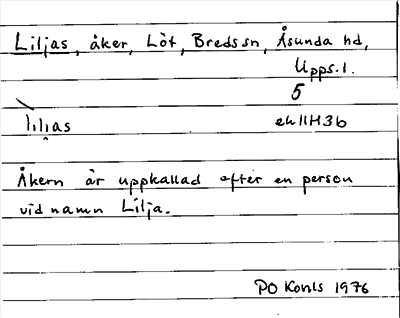 Liljas, åker, Löt, Breds sn, Åsunda hd,
Upps. l.
5
lilịas ek 11H3b
Åkern är uppkallad efter en person
vid namn Lilja.
PO Konls 1976